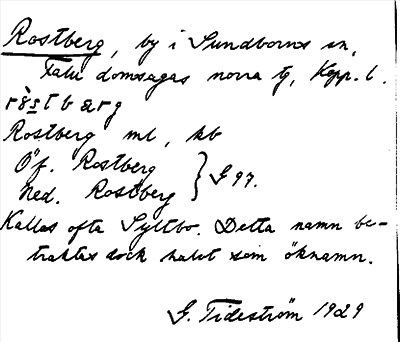 Rostberg, by i Sundborns sn,
Falu domsagas norra tg, Kopp. l.
Rostberg ml, kb
Öf. Rostberg
Ned. Rostberg } G 97.
Kallas ofta Syltbo. Detta namn be-
traktas dock halvt som öknamn.
G. Tideström 1929